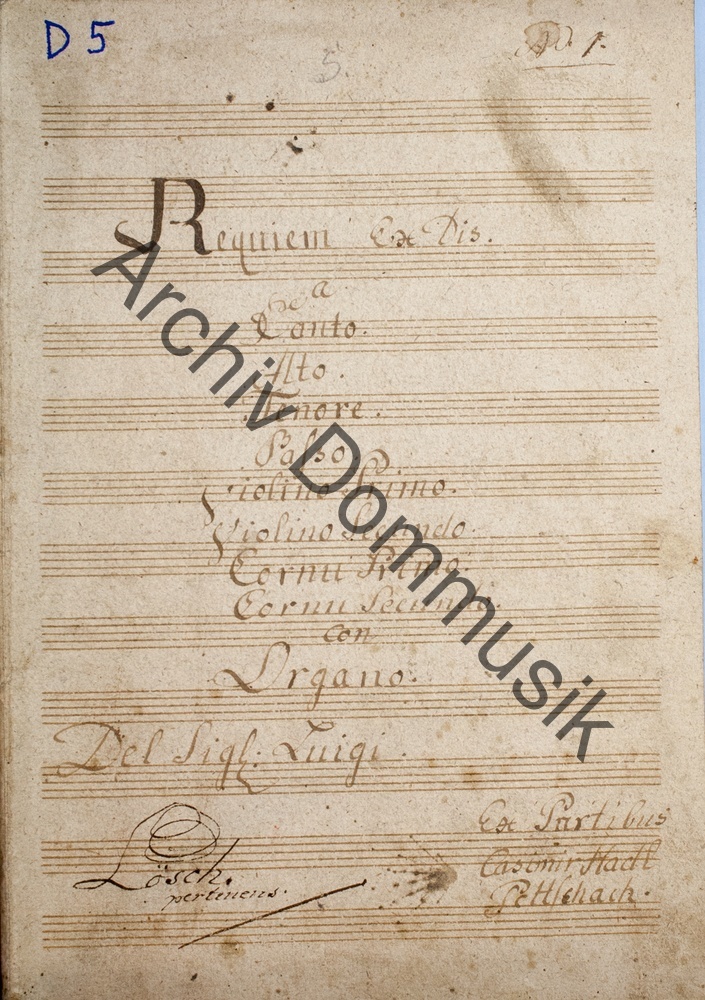 D 5
5.
No. 1.
Requiem Ex Dis.
a
Canto.
Alto.
Tenore.
Basso.
Violino Primo.
Violino Secundo.
Cornu Primo.
Cornu Secundo.
Con
Organo.
Del Sigl. Luigi.
Lösch.
pertinens.
Ex Partibus
Casimir Hackl
Archiv Dommusik